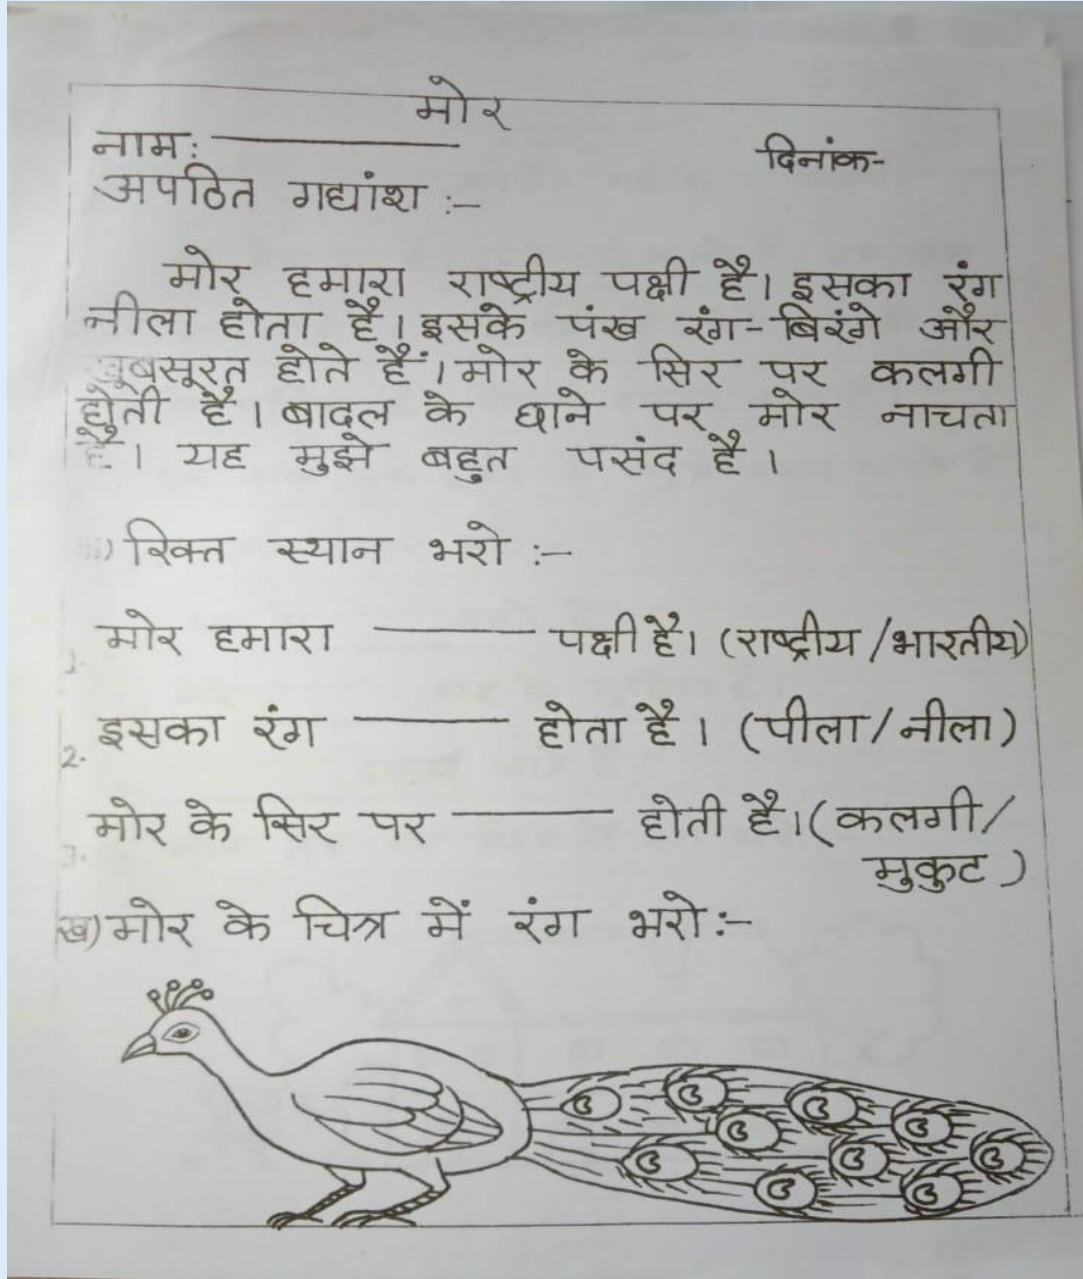 मोर
नाम: दिनांक-
अपठित गद्यांश :-
मोर हमारा राष्ट्रीय पक्षी है। इसका रंग
नीला होता है। इसके पंख रंग-बिरंगे और
खुबसूरत होते हैं। मोर के सिर पर कलगी
होती है। बादल के छाने पर मोर नाचता
है। यह मुझे बहुत पसंद है।
रिक्त स्थान भरो :-
1. मोर हमारा ——— पक्षी है। (राष्ट्रीय/भारतीय)
2. इसका रंग ——— होता है। (पीला/नीला)
3. मोर के सिर पर ——— होती है। (कलगी/
मुकुट)
ख) मोर के चित्र में रंग भरो:-